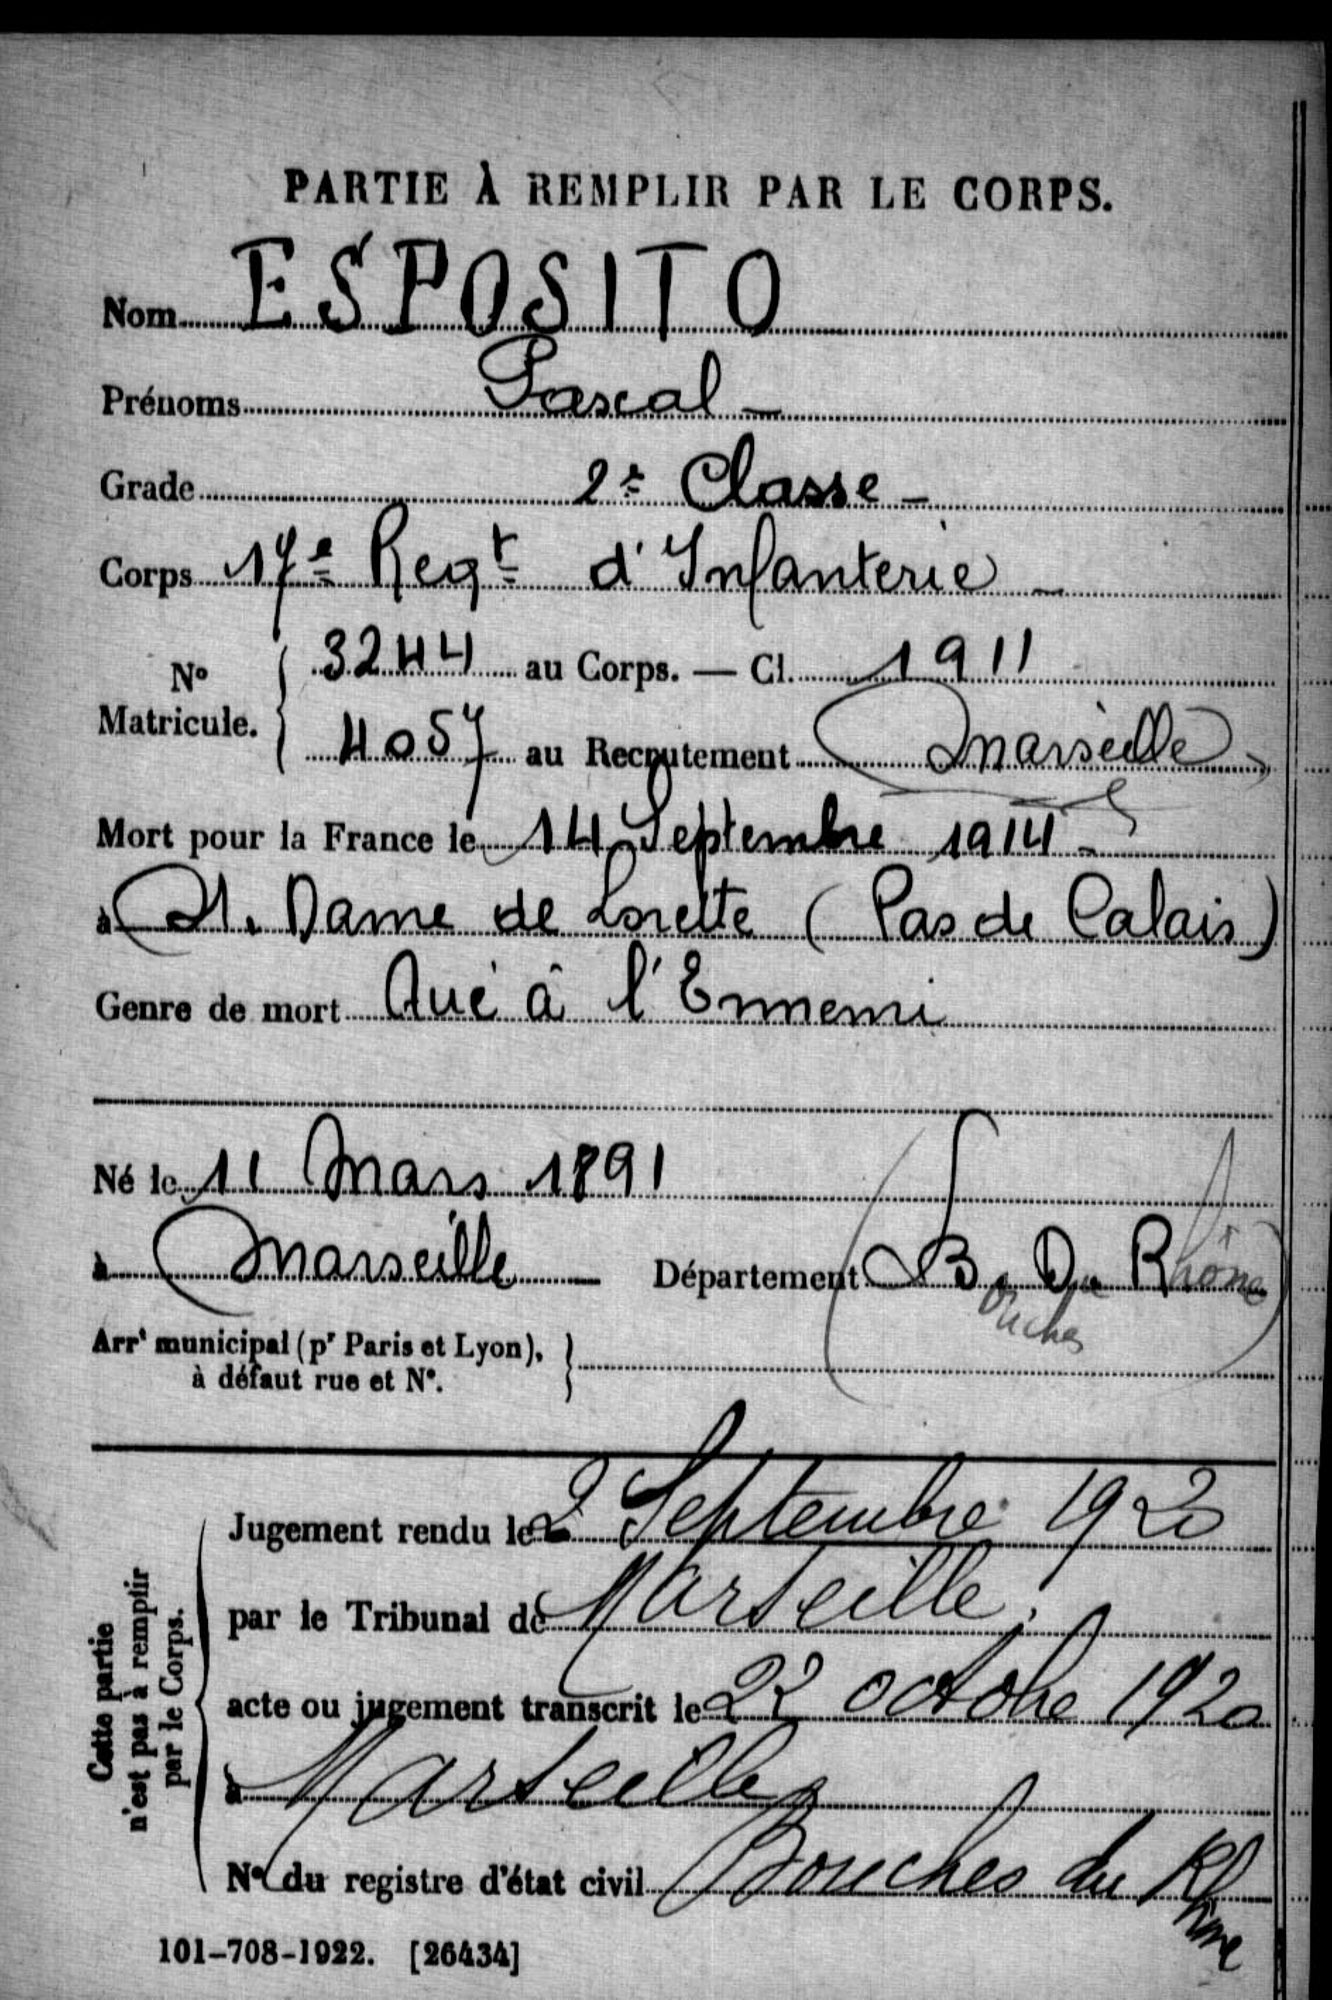 PARTIE À REMPLIR PAR LE CORPS.
Nom ESPOSITO
Prénoms Pascal
Grade 2e Classe
Corps 17e Regt d'Infanterie
No Matricule. 3244 au Corps. — Cl. 1911
4057 au Recrutement Marseille
Mort pour la France le 14 Septembre 1914
à N. Dame de Lorette (Pas de Calais)
Genre de mort Tué à l'Ennemi
Né le 11 Mars 1891
à Marseille Département B. Du Rhône
ouches
Arrt municipal (pr Paris et Lyon),
à défaut rue et No.
Jugement rendu le 2 Septembre 1920
par le Tribunal de Marseille.
acte ou jugement transcrit le 22 octobre 1920
à Marseille
No du registre d'état civil Bouches du Rhône
Cette partie
n'est pas à remplir
par le Corps.
101-708-1922. [26434]